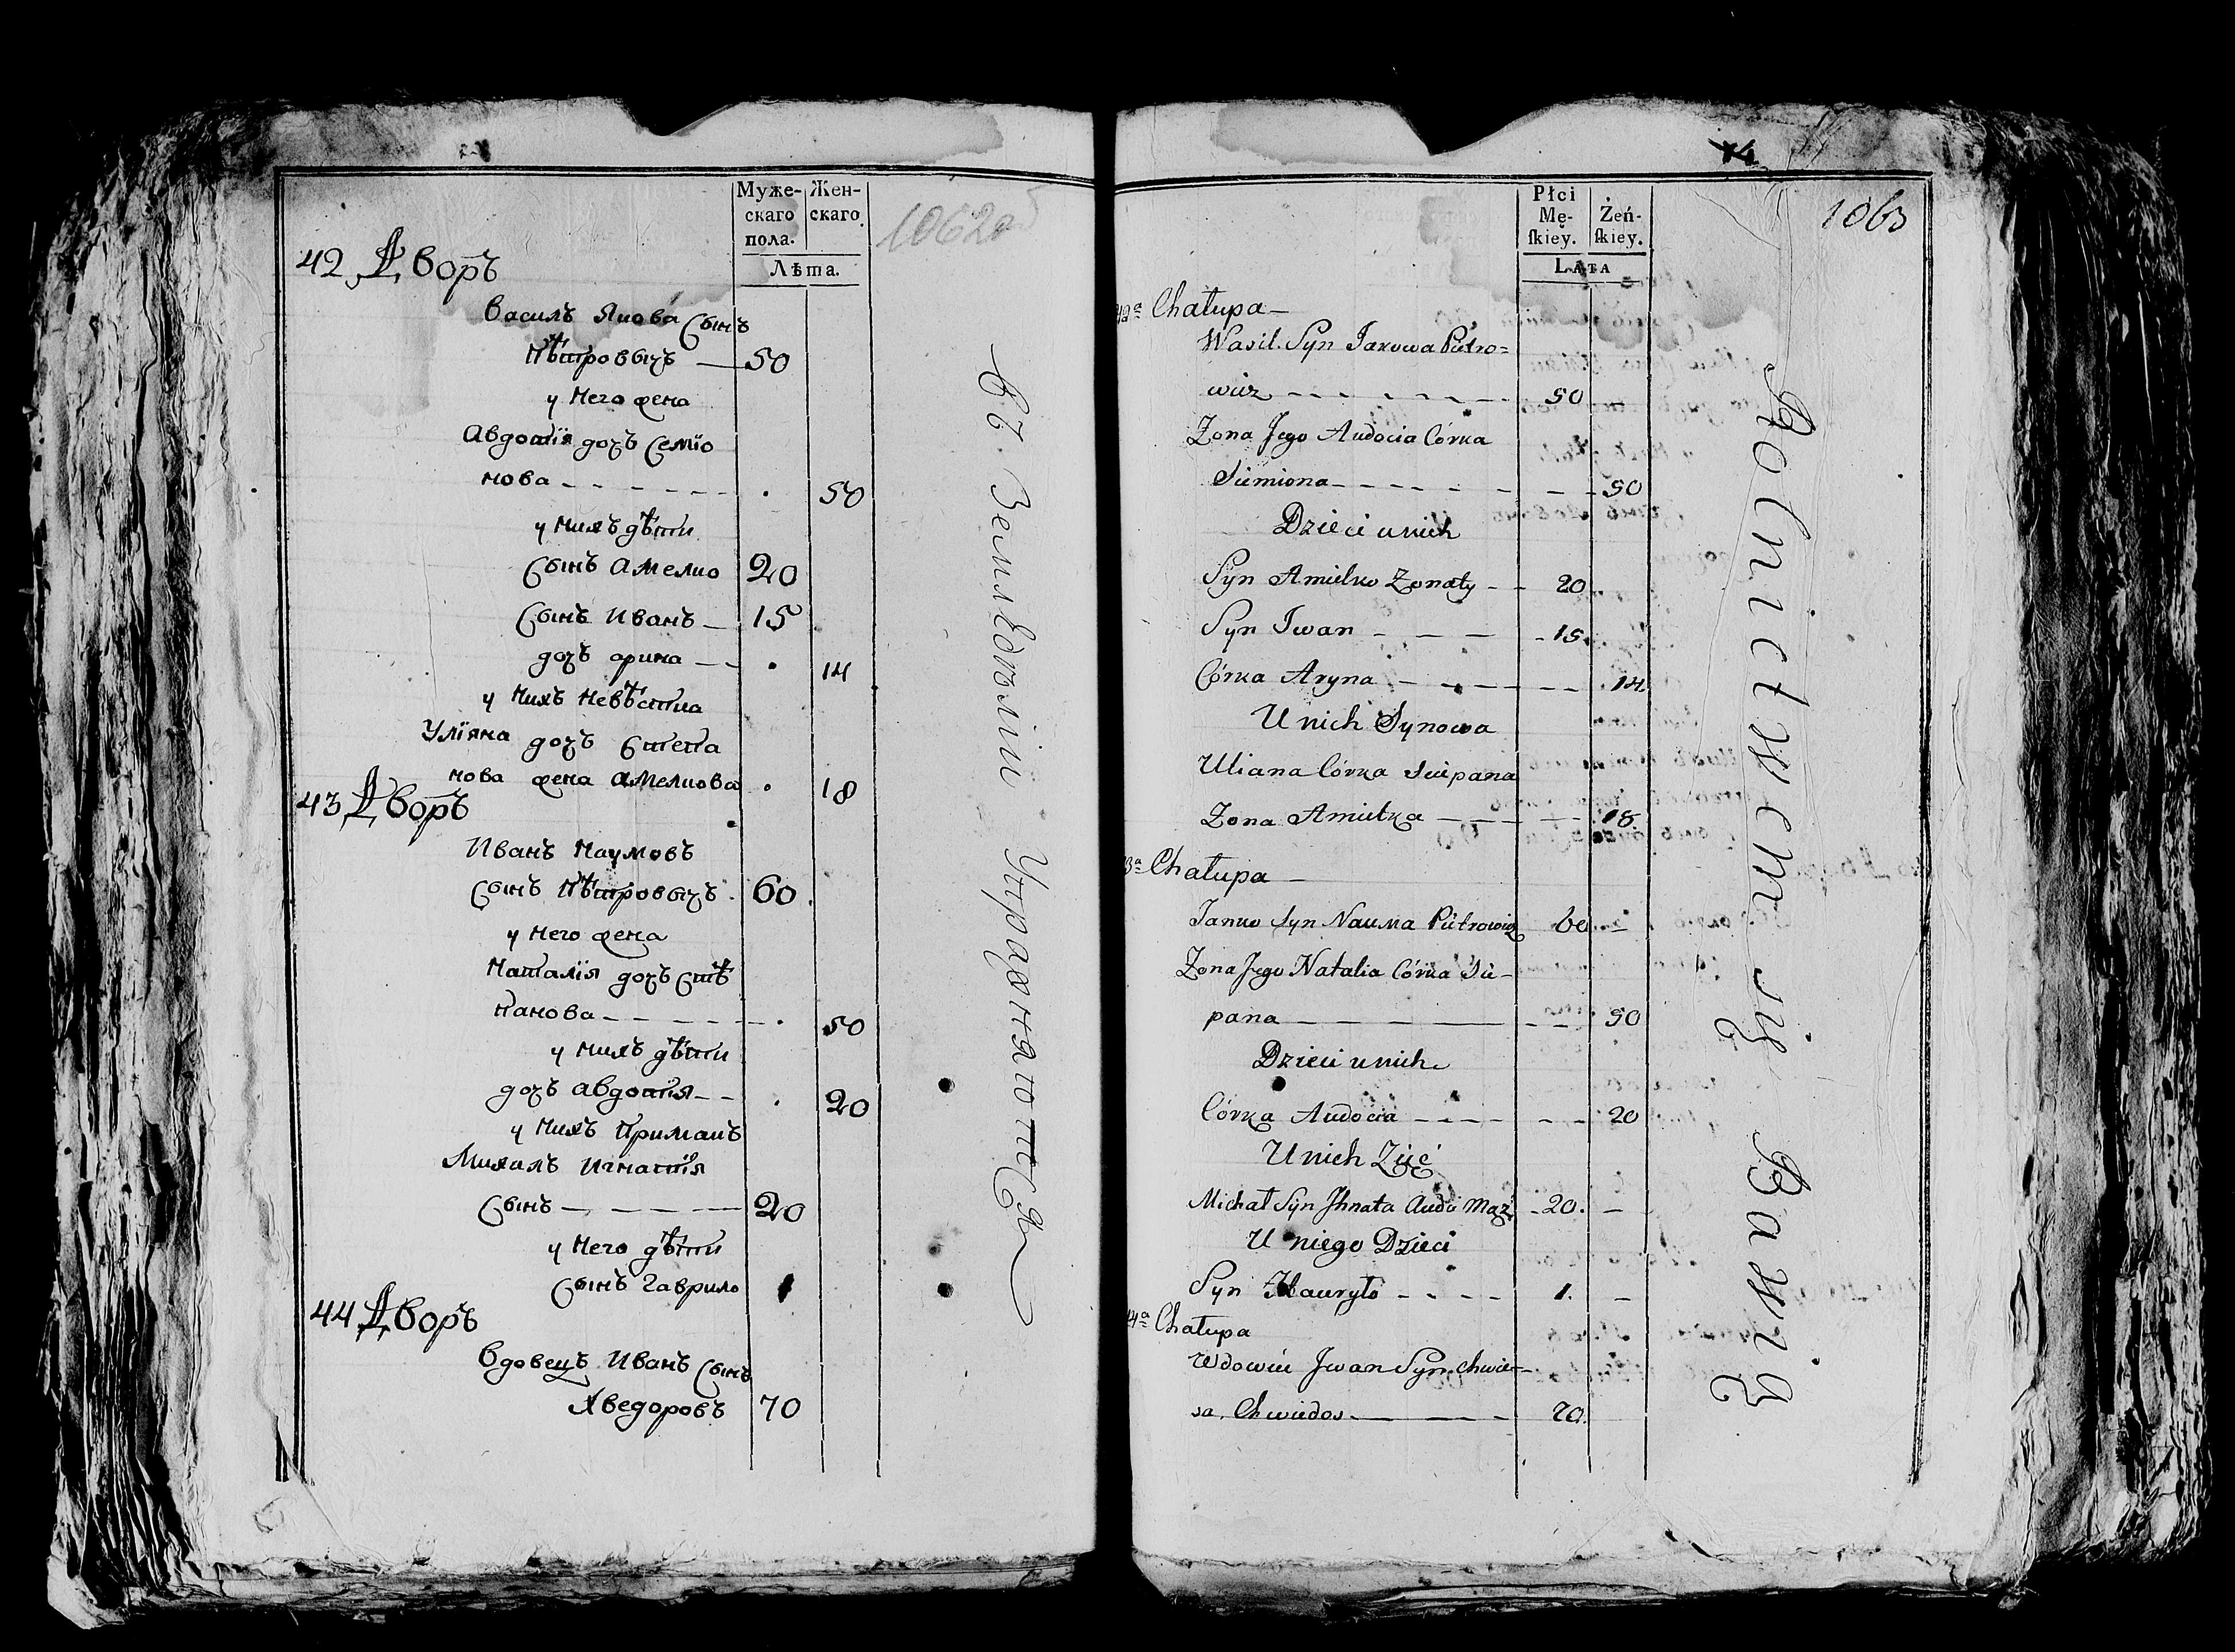 Муже-
скаго
пола.
Жен-
скаго
Лѣта.
1062об
42 Дворъ
Василь Якова Сынъ
Пѣтровичъ — 50
у Него жена
Авдотія дочъ Семіо
нова - - - - - - . 50
у нихъ дѣти
Сынъ Амелко 20
Сынъ Иванъ — 15
дочъ орина — - . 14
у нихъ невѣстка
Уліяна дочъ Степа
нова жена Амелкова . 18
43 Дворъ
Иванъ Наумовъ
Сынъ Пѣтровичъ . 60
у Него жена
Наталія дочъ Стѣ
панова - - - - - - . 50
у нихъ дѣти
дочъ Авдотія - - . 20
у нихъ Примакъ
Михалъ Игнатія
Сынъ — - — - — 20
у Него дѣти
Сынъ Гаврило 1
44 Дворъ
Вдовецъ Иванъ Сынъ
Хведоровъ 70
въ Земледѣліи Упражняются
14
1063
Płci
Mę-
ſkiey.
Żeń-
ſkiey.
LATA
42ª Chałupa —
Wasil Syn Jakowa Pietro=
wicz - - - - - - 50
Zona Jego Audocia Córka
Siemiona - - - - - - — - 50
Dzieci u nich
Syn Amielko Zonaty - - 20
Syn Iwan - — — - 15.
Córka Aryna — - — - — - - . 14.
U nich Synowa
Uliana Córka Sciepana
Zona Amielka — — — — 18
43ª Chałupa —
Janko Syn Nauma Pietrowicz 60 —
Zona Jego Natalia Córka Scie-
pana — — — — - - 50
Dzieci u nich
Córka Audocia - - - - - - 20
U nich Zięć
Michał Syn Jhnata Audoci Mąż - 20. —
U niego Dzieci
Syn Hauryło - - - - 1. —
44ª Chałupa
Wdowiec Jwan Syn Chwie-
sa, Chwiedos — — - 70.
Rolnictwem się Bawią